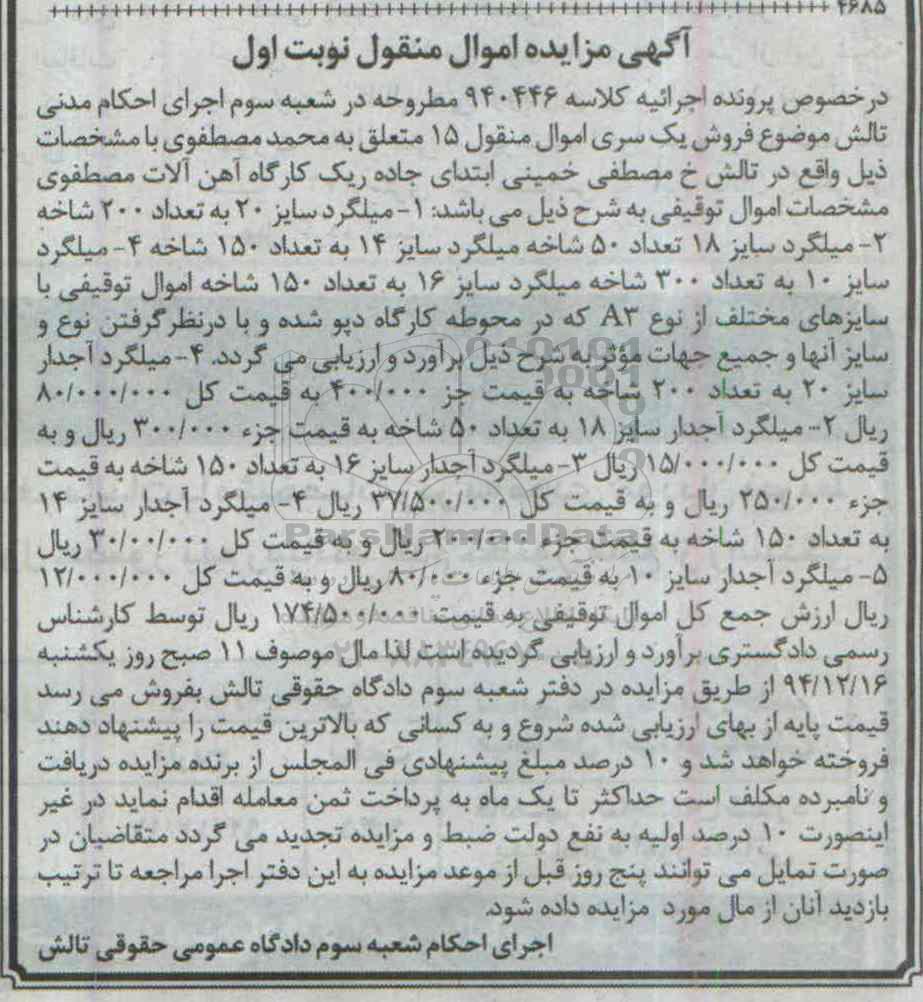 ۴۶۸۵
آگهی مزایده اموال منقول نوبت اول
درخصوص پرونده اجرائیه کلاسه ۹۴۰۴۴۶ مطروحه در شعبه سوم اجرای احکام مدنی
تالش موضوع فروش یک سری اموال منقول ۱۵ متعلق به محمد مصطفوی با مشخصات
ذیل واقع در تالش خ مصطفی خمینی ابتدای جاده ریک کارگاه آهن آلات مصطفوی
مشخصات اموال توقیفی به شرح ذیل می باشد: ۱- میلگرد سایز ۲۰ به تعداد ۲۰۰ شاخه
۲- میلگرد سایز ۱۸ تعداد ۵۰ شاخه میلگرد سایز ۱۴ به تعداد ۱۵۰ شاخه ۴- میلگرد
سایز ۱۰ به تعداد ۳۰۰ شاخه میلگرد سایز ۱۶ به تعداد ۱۵۰ شاخه اموال توقیفی با
سایزهای مختلف از نوع A۳ که در محوطه کارگاه دپو شده و با درنظر گرفتن نوع و
سایز آنها و جمیع جهات مؤثر به شرح ذیل برآورد و ارزیابی می گردد. ۴- میلگرد آجدار
سایز ۲۰ به تعداد ۲۰۰ شاخه به قیمت جز ۴۰۰/۰۰۰ به قیمت کل ۸۰/۰۰۰/۰۰۰
ریال ۲- میلگرد آجدار سایز ۱۸ به تعداد ۵۰ شاخه به قیمت جزء ۳۰۰/۰۰۰ ریال و به
قیمت کل ۱۵/۰۰۰/۰۰۰ ریال ۳- میلگرد آجدار سایز ۱۶ به تعداد ۱۵۰ شاخه به قیمت
جزء ۲۵۰/۰۰۰ ریال و به قیمت کل ۳۷/۵۰۰/۰۰۰ ریال ۴- میلگرد آجدار سایز ۱۴
به تعداد ۱۵۰ شاخه به قیمت جزء ۲۰۰/۰۰۰ ریال و به قیمت کل ۳۰/۰۰/۰۰۰ ریال
۵- میلگرد آجدار سایز ۱۰ به قیمت جزء ۸۰/۰۰۰ ریال و به قیمت کل ۱۲/۰۰۰/۰۰۰
ریال ارزش جمع کل اموال توقیفی به قیمت ۱۷۴/۵۰۰/۰۰۰ ریال توسط کارشناس
رسمی دادگستری برآورد و ارزیابی گردیده است لذا مال موصوف ۱۱ صبح روز یکشنبه
۹۴/۱۲/۱۶ از طریق مزایده در دفتر شعبه سوم دادگاه حقوقی تالش بفروش می رسد
قیمت پایه از بهای ارزیابی شده شروع و به کسانی که بالاترین قیمت را پیشنهاد دهند
فروخته خواهد شد و ۱۰ درصد مبلغ پیشنهادی فی المجلس از برنده مزایده دریافت
و نامبرده مکلف است حداکثر تا یک ماه به پرداخت ثمن معامله اقدام نماید در غیر
اینصورت ۱۰ درصد اولیه به نفع دولت ضبط و مزایده تجدید می گردد متقاضیان در
صورت تمایل می توانند پنج روز قبل از موعد مزایده به این دفتر اجرا مراجعه تا ترتیب
بازدید آنان از مال مورد مزایده داده شود.
اجرای احکام شعبه سوم دادگاه عمومی حقوقی تالش
ParsNamadData